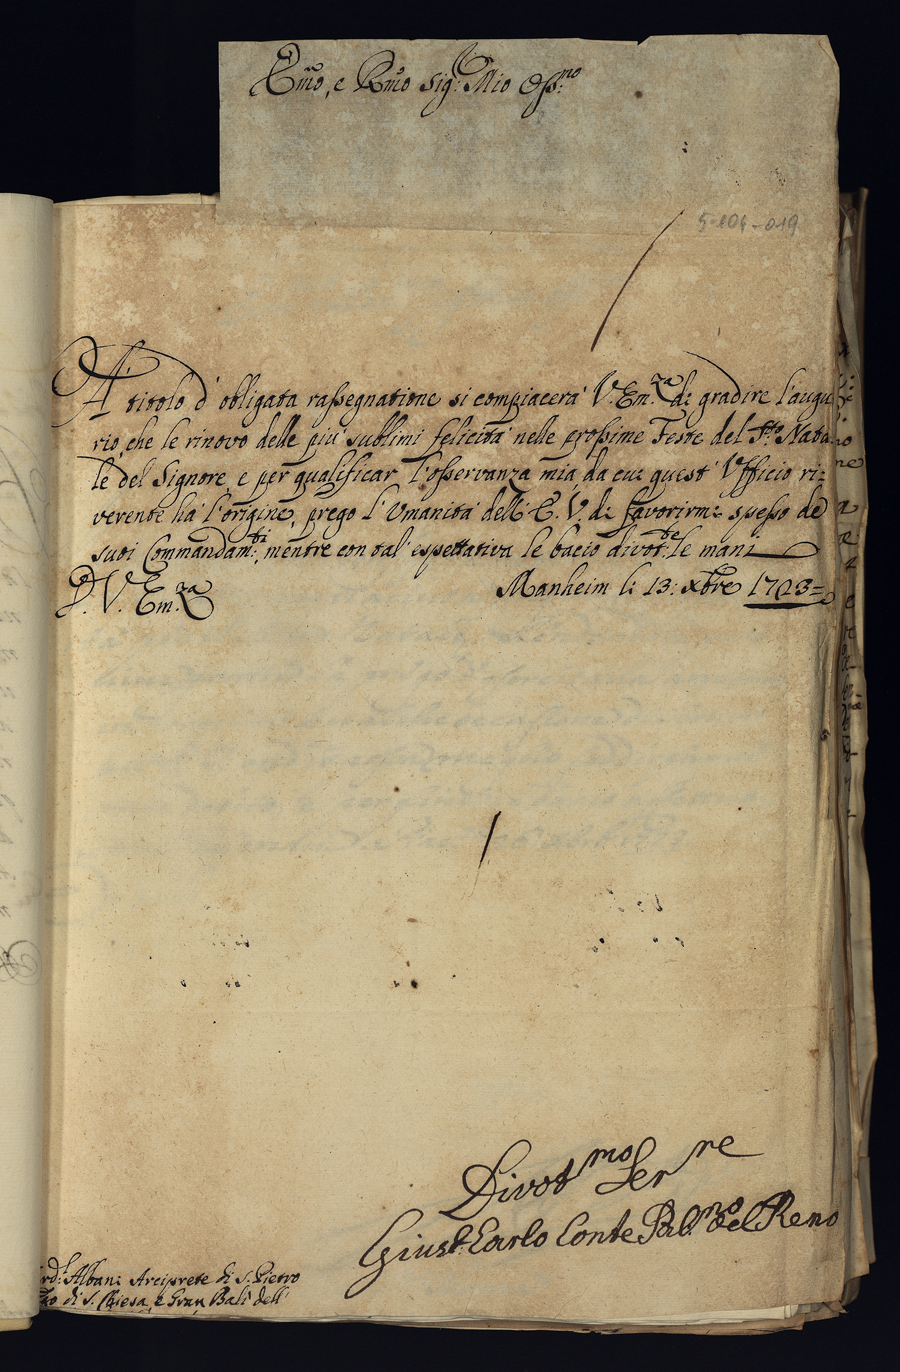 Em̃o, e Rm̃o Sig:r Mio Oss:mo
5-104-019
A' titolo d' obligata rassegnatione si compiacerà V. Em.za di gradire l'augu
rio, che le rinovo delle più sublimi felicità nelle prossime Feste del S.to Nata
le del Signore, e per qualificar l'osservanza mia da cui quest' Ufficio ri:
verente hà l'origine, prego l'Umanità dell' E. V. di favorirmi spesso de
suoi Commandam:ti, mentre con tal' espettativa le bacio divot:te le mani
D. V. Em.za
Manheim li 13: Xbre 1723=
Divot mo Ser re
Giusp. Carlo Conte Pal.no del Reno
Card.l Albani Arciprete di S. Pietro
di S. Chiesa, e Gran Bali dell'